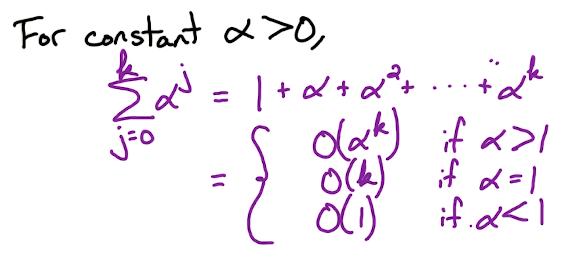 For constant α > 0,
k
∑ α^j = 1 + α + α^2 + ⋯ + α^k
j=0
= { O(α^k) if α > 1
O(k) if α = 1
O(1) if α < 1